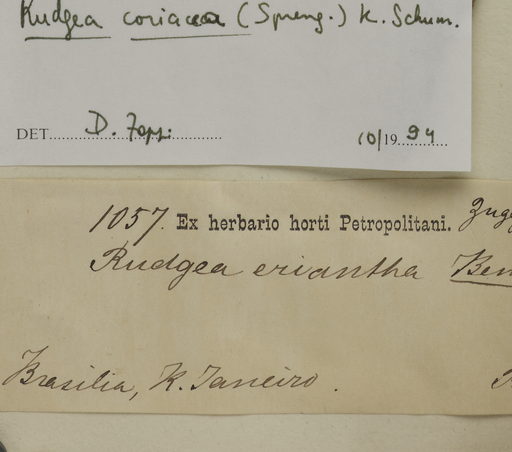 Rudgea coriacea (Spreng.) K. Schum.
DET. D. Zappi 10/1994
1057. Ex herbario horti Petropolitani.
Rudgea eriantha Ben
Brasilia, R. Janeiro.